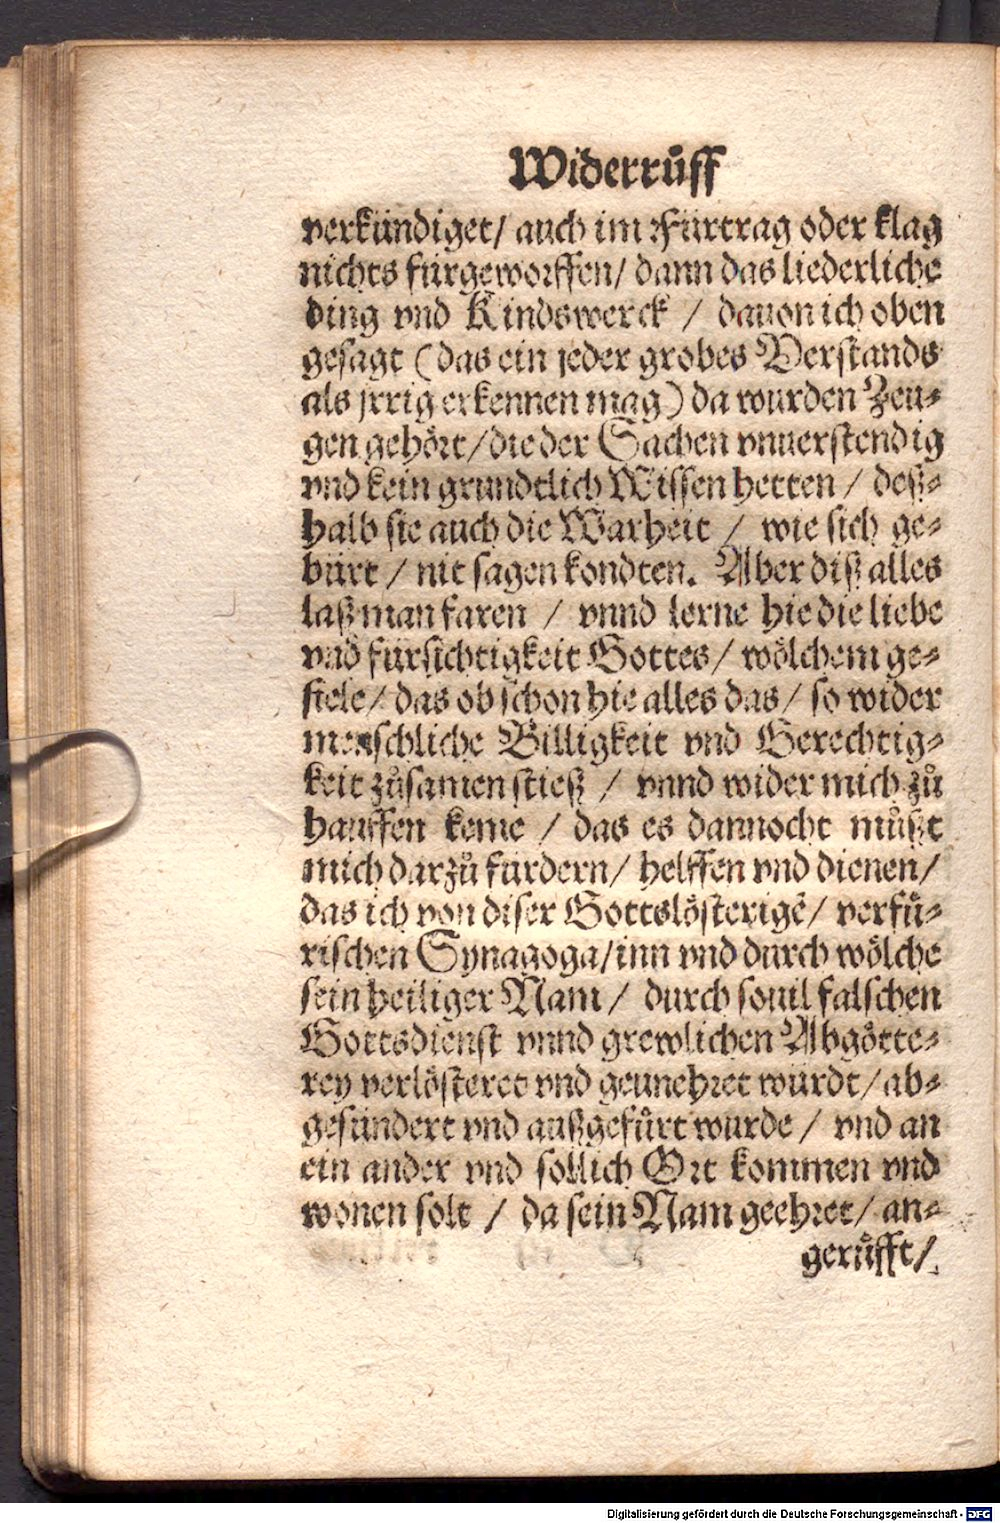 Widerrůff
verkündiget/ auch im Fürtrag oder klag
nichts fürgeworffen/ dann das liederliche
ding vnd Kindswerck / dauon ich oben
gesagt (das ein jeder grobes Verstands
als jrrig erkennen mag) da wurden Zeu⸗
gen gehört/die der Sachen vnuerstendig
vnd kein grundtlich Wissen hetten / deß⸗
halb sie auch die Warheit / wie sich ge⸗
bürt / nit sagen kondten. Aber diß alles
laß man faren / vnnd lerne hie die liebe
vnd fürsichtigkeit Gottes/ wölchem ge⸗
fiele/ das ob schon hie alles das/ so wider
menschliche Billigkeit vnd Gerechtig⸗
keit zůsamen stieß / vnnd wider mich zů
hauffen keme / das es dannocht můßt
mich darzů fürdern/ helffen vnd dienen/
das ich von diser Gottslösterigẽ/ verfü⸗
rischen Synagoga/inn vnd durch wölche
sein heiliger Nam / durch souil falschen
Gottsdienst vnnd grewlichen Abgötte⸗
rey verlösteret vnd geunehret würdt/ab⸗
gesündert vnd außgefürt wurde / vnd an
ein ander vnd söllich Ort kommen vnd
wonen solt / da sein Nam geehret/ an⸗
gerůfft/
Digitalisierung gefördert durch die Deutsche Forschungsgemeinschaft - DFG